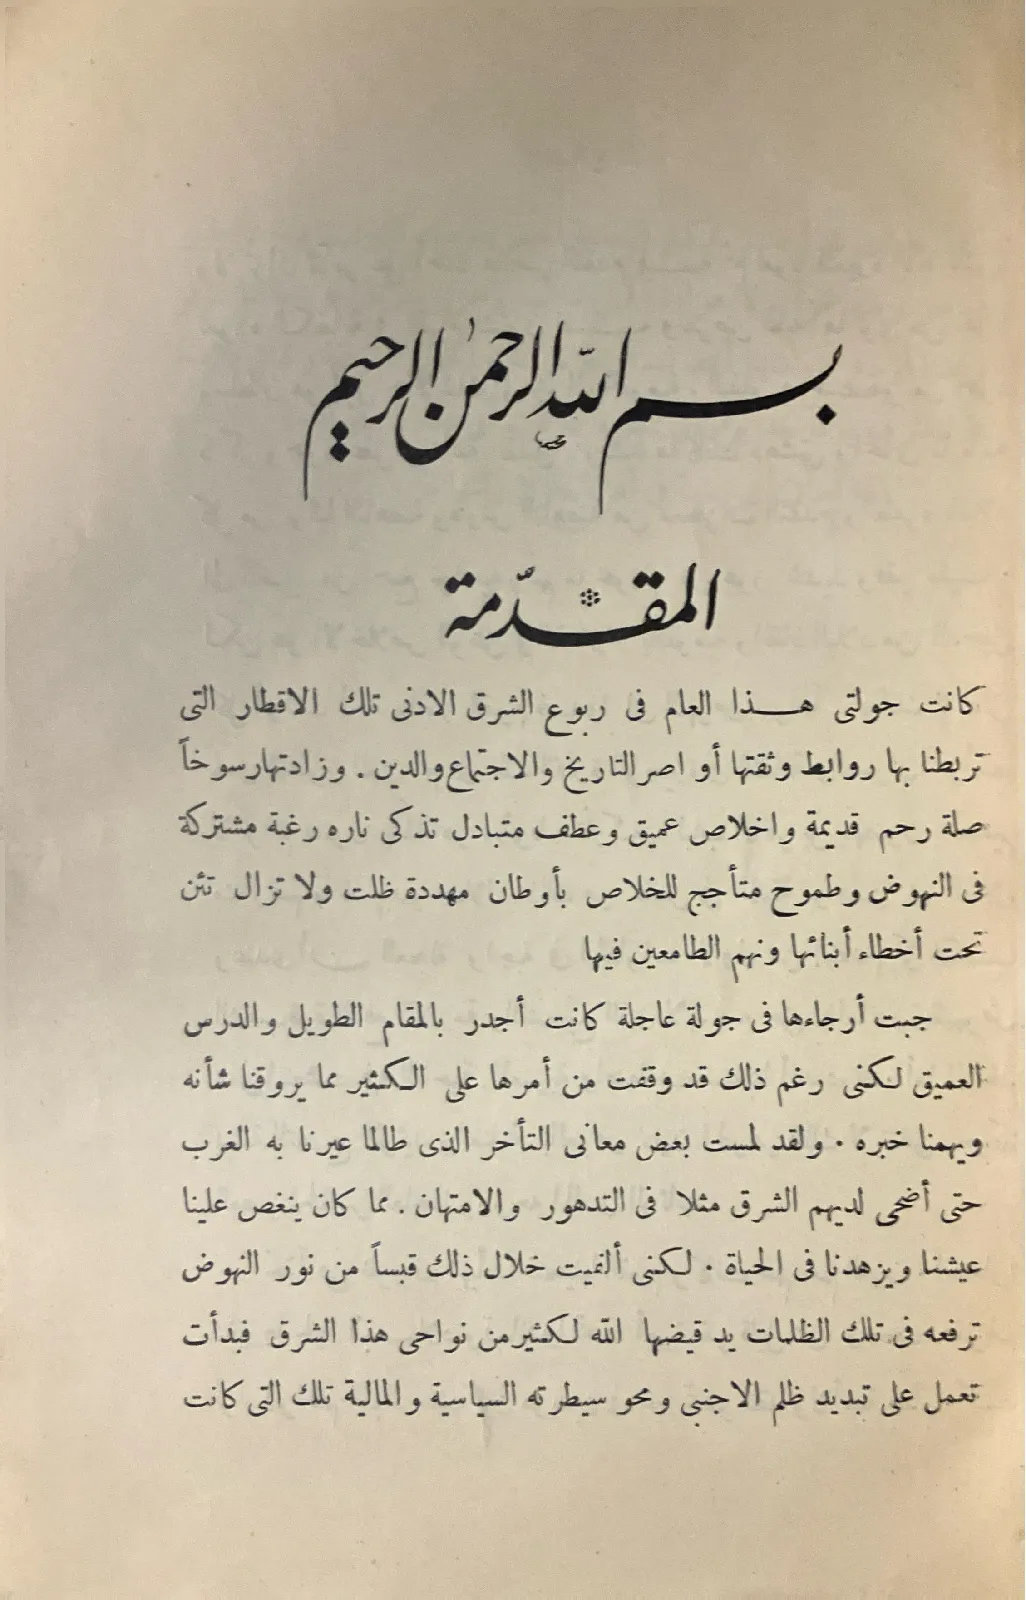 بسم الله الرحمن الرحيم
المقدّمة
كانت جولتى هـذا العام فى ربوع الشرق الادنى تلك الاقطار التى
تربطنا بها روابط وثقتها أو اصر التاريخ والاجتماع والدين . وزادتها رسوخاً
صلة رحم قديمة واخلاص عميق وعطف متبادل تذكى ناره رغبة مشتركة
فى النهوض وطموح متأجج للخلاص بأوطان مهددة ظلت ولا تزال تئن
تحت أخطاء أبنائها ونهم الطامعين فيها
جبت أرجاءها فى جولة عاجلة كانت أجدر بالمقام الطويل والدرس
العميق لكنى رغم ذلك قد وقفت من أمرها على الكثير مما يروقنا شأنه
ويهمنا خبره . ولقد لمست بعض معانى التأخر الذى طالما عيرنا به الغرب
حتى أضحى لديهم الشرق مثلا فى التدهور والامتهان . مما كان ينغص علينا
عيشنا ويزهدنا فى الحياة . لكنى ألفيت خلال ذلك قبساً من نور النهوض
ترفعه فى تلك الظلمات يد قيضها الله لكثير من نواحى هذا الشرق فبدأت
تعمل على تبديد ظلم الاجنبى ومحو سيطرته السياسية والمالية تلك التى كانت